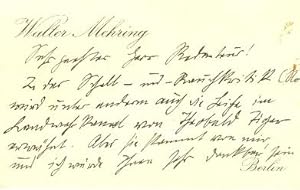 Walter Mehring
Sehr geehrter Herr Redakteur!
In der Schall- und Rauchkritik
wird unter anderem auch die Leiche im
Landwehrkanal von Theobald Tiger
erwähnt. Aber sie stammt von mir
und ich würde Ihnen sehr dankbar sein
Berlin